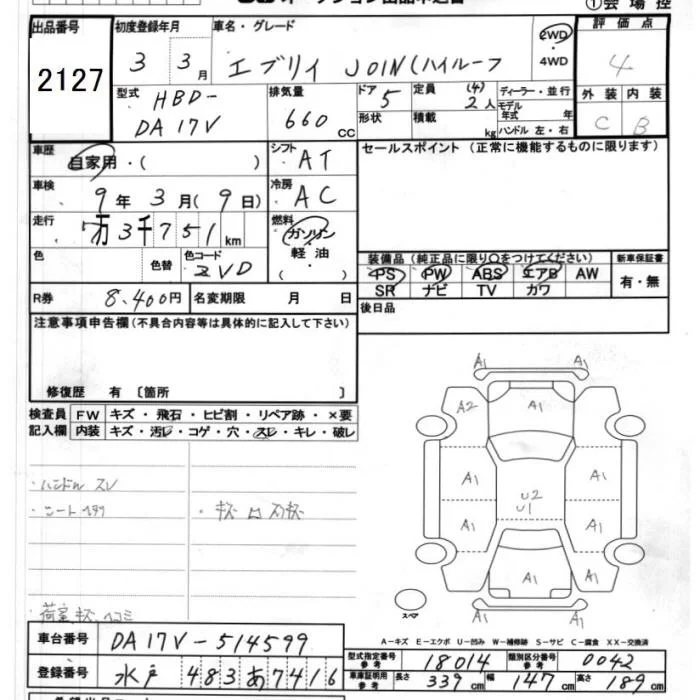 ①会場控
出品番号 初度登録年月 車名・グレード 評価点
2127 3 3月 エブリイ JOIN(ハイルーフ 2WD ・ 4WD 4
型式 HBD- DA17V 排気量 660cc ドア 5 形状 定員 (4) 2人 積載 kg ディーラー・並行 モデル年式 年 ハンドル 左・右 外装 内装 C B
車歴 自家用・( ) シフト AT セールスポイント (正常に機能するものに限ります)
車検 9年 3月(9日) 冷房 AC
走行 万3千751km 燃料 ガソリン・軽油・( )
色 色替 色コード ZVD
装備品(純正品に限り○をつけてください) 新車保証書
PS PW ABS エアB AW 有・無
SR ナビ TV カワ
R券 8,400円 名変期限 月 日 後日品
注意事項申告欄(不具合内容等は具体的に記入して下さい)
修復歴 有 〔箇所 〕
検査員記入欄 FW キズ・飛石・ヒビ割・リペア跡・×要
内装 キズ・汚レ・コゲ・穴・スレ・キレ・破レ
A1 A1
A2 A1 A1
A1 A1
U2
U1
A1 A1
A1 A1
A1 A1
スペア
・ハンドル スレ
・シート ヘタリ
荷室 キズ ヘコミ
A-キズ E-エクボ U-凹み W-補修跡 S-サビ C-腐食 XX-交換済
車台番号 DA17V-514599
型式指定番号 参考 18014 類別区分番号 参考 0042
登録番号 水戸 483あ7416
車庫証明用 参考 長さ 339cm 幅 147cm 高さ 189cm